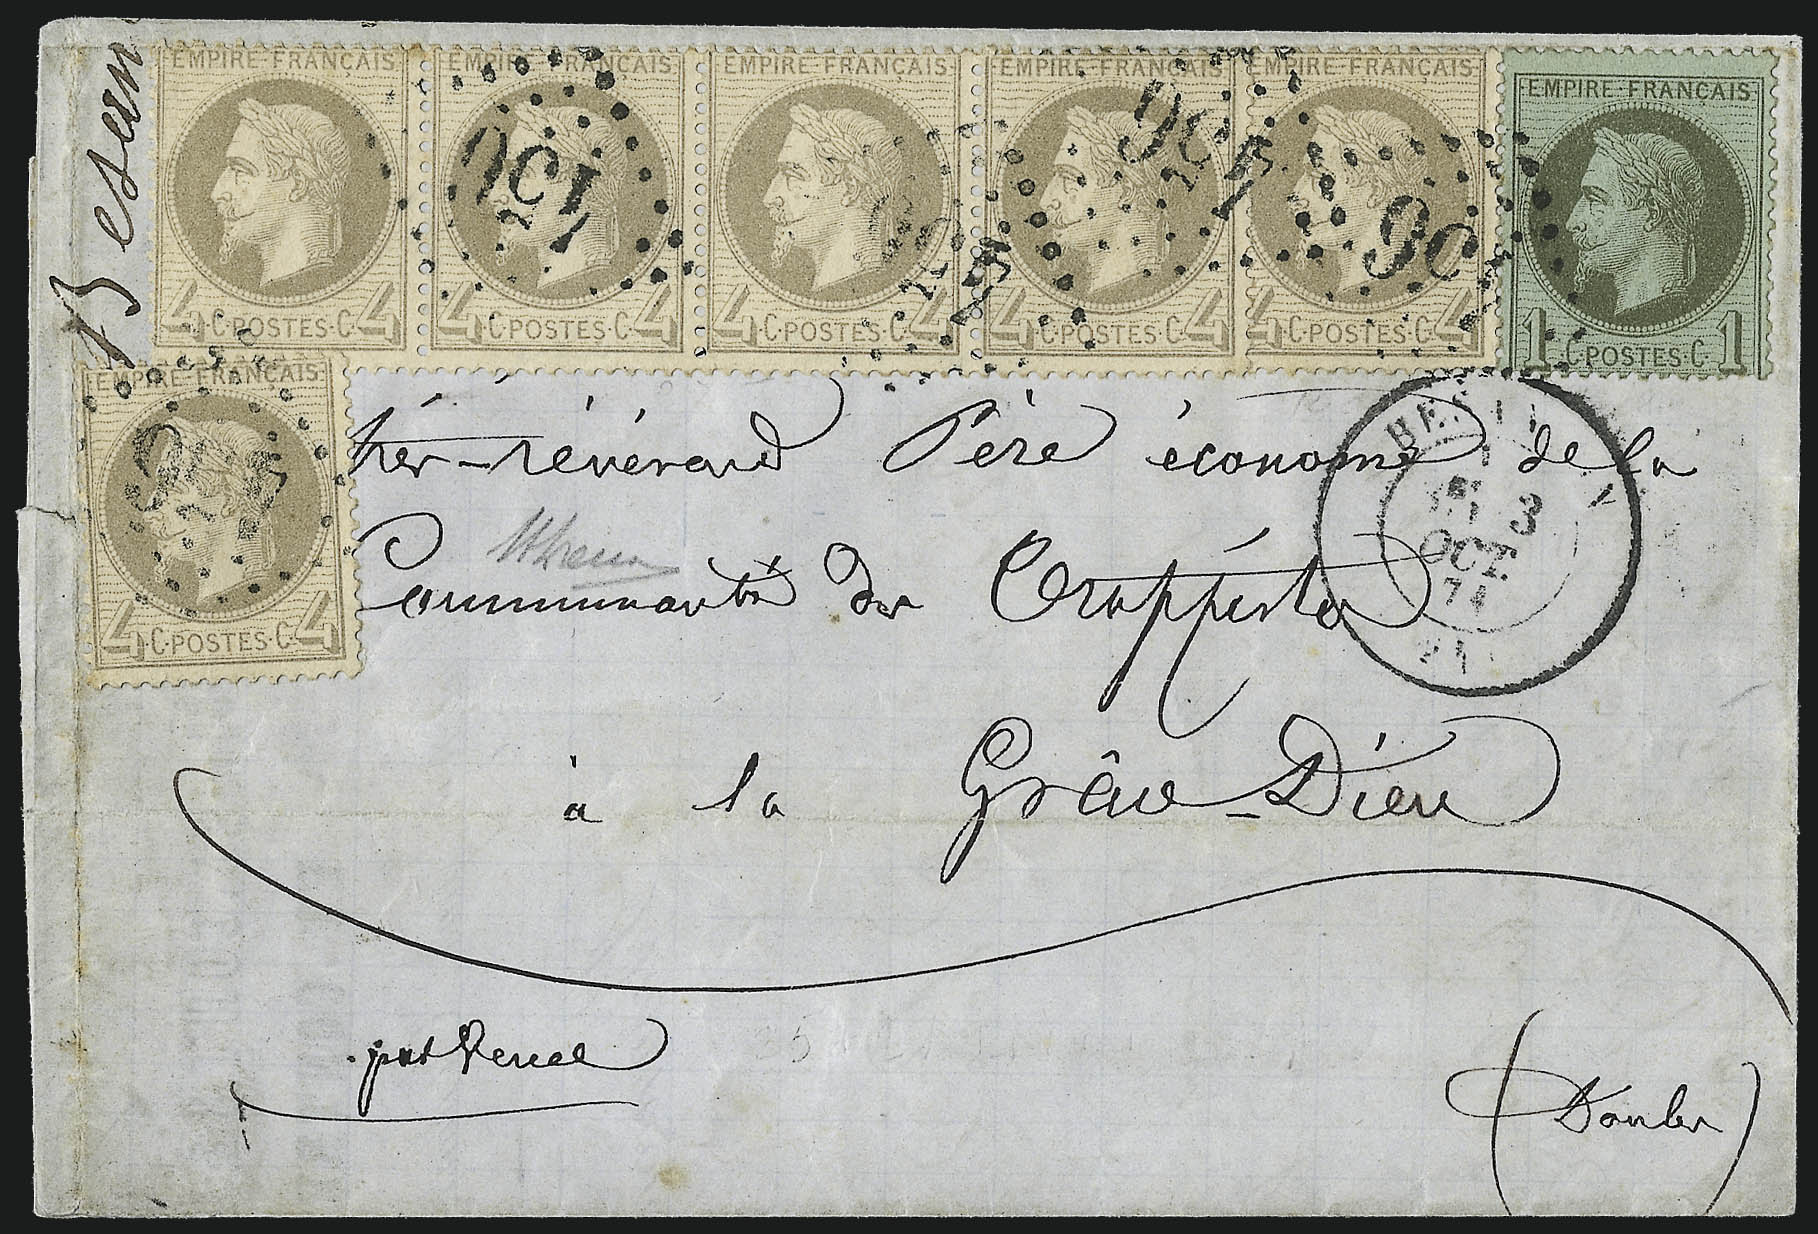 Besan
EMPIRE·FRANÇAIS
4 C·POSTES·C 4
EMPIRE·FRANÇAIS
4 C·POSTES·C 4
EMPIRE·FRANÇAIS
4 C·POSTES·C 4
EMPIRE·FRANÇAIS
4 C·POSTES·C 4
EMPIRE·FRANÇAIS
4 C·POSTES·C 4
EMPIRE·FRANÇAIS
1 C·POSTES·C 1
EMPIRE·FRANÇAIS
4 C·POSTES·C 4
très-révérend Père économe de la
Communauté des Trappistes
à la Grâce-Dieu
3
OCT.
74
par Vercel
(Doubs)